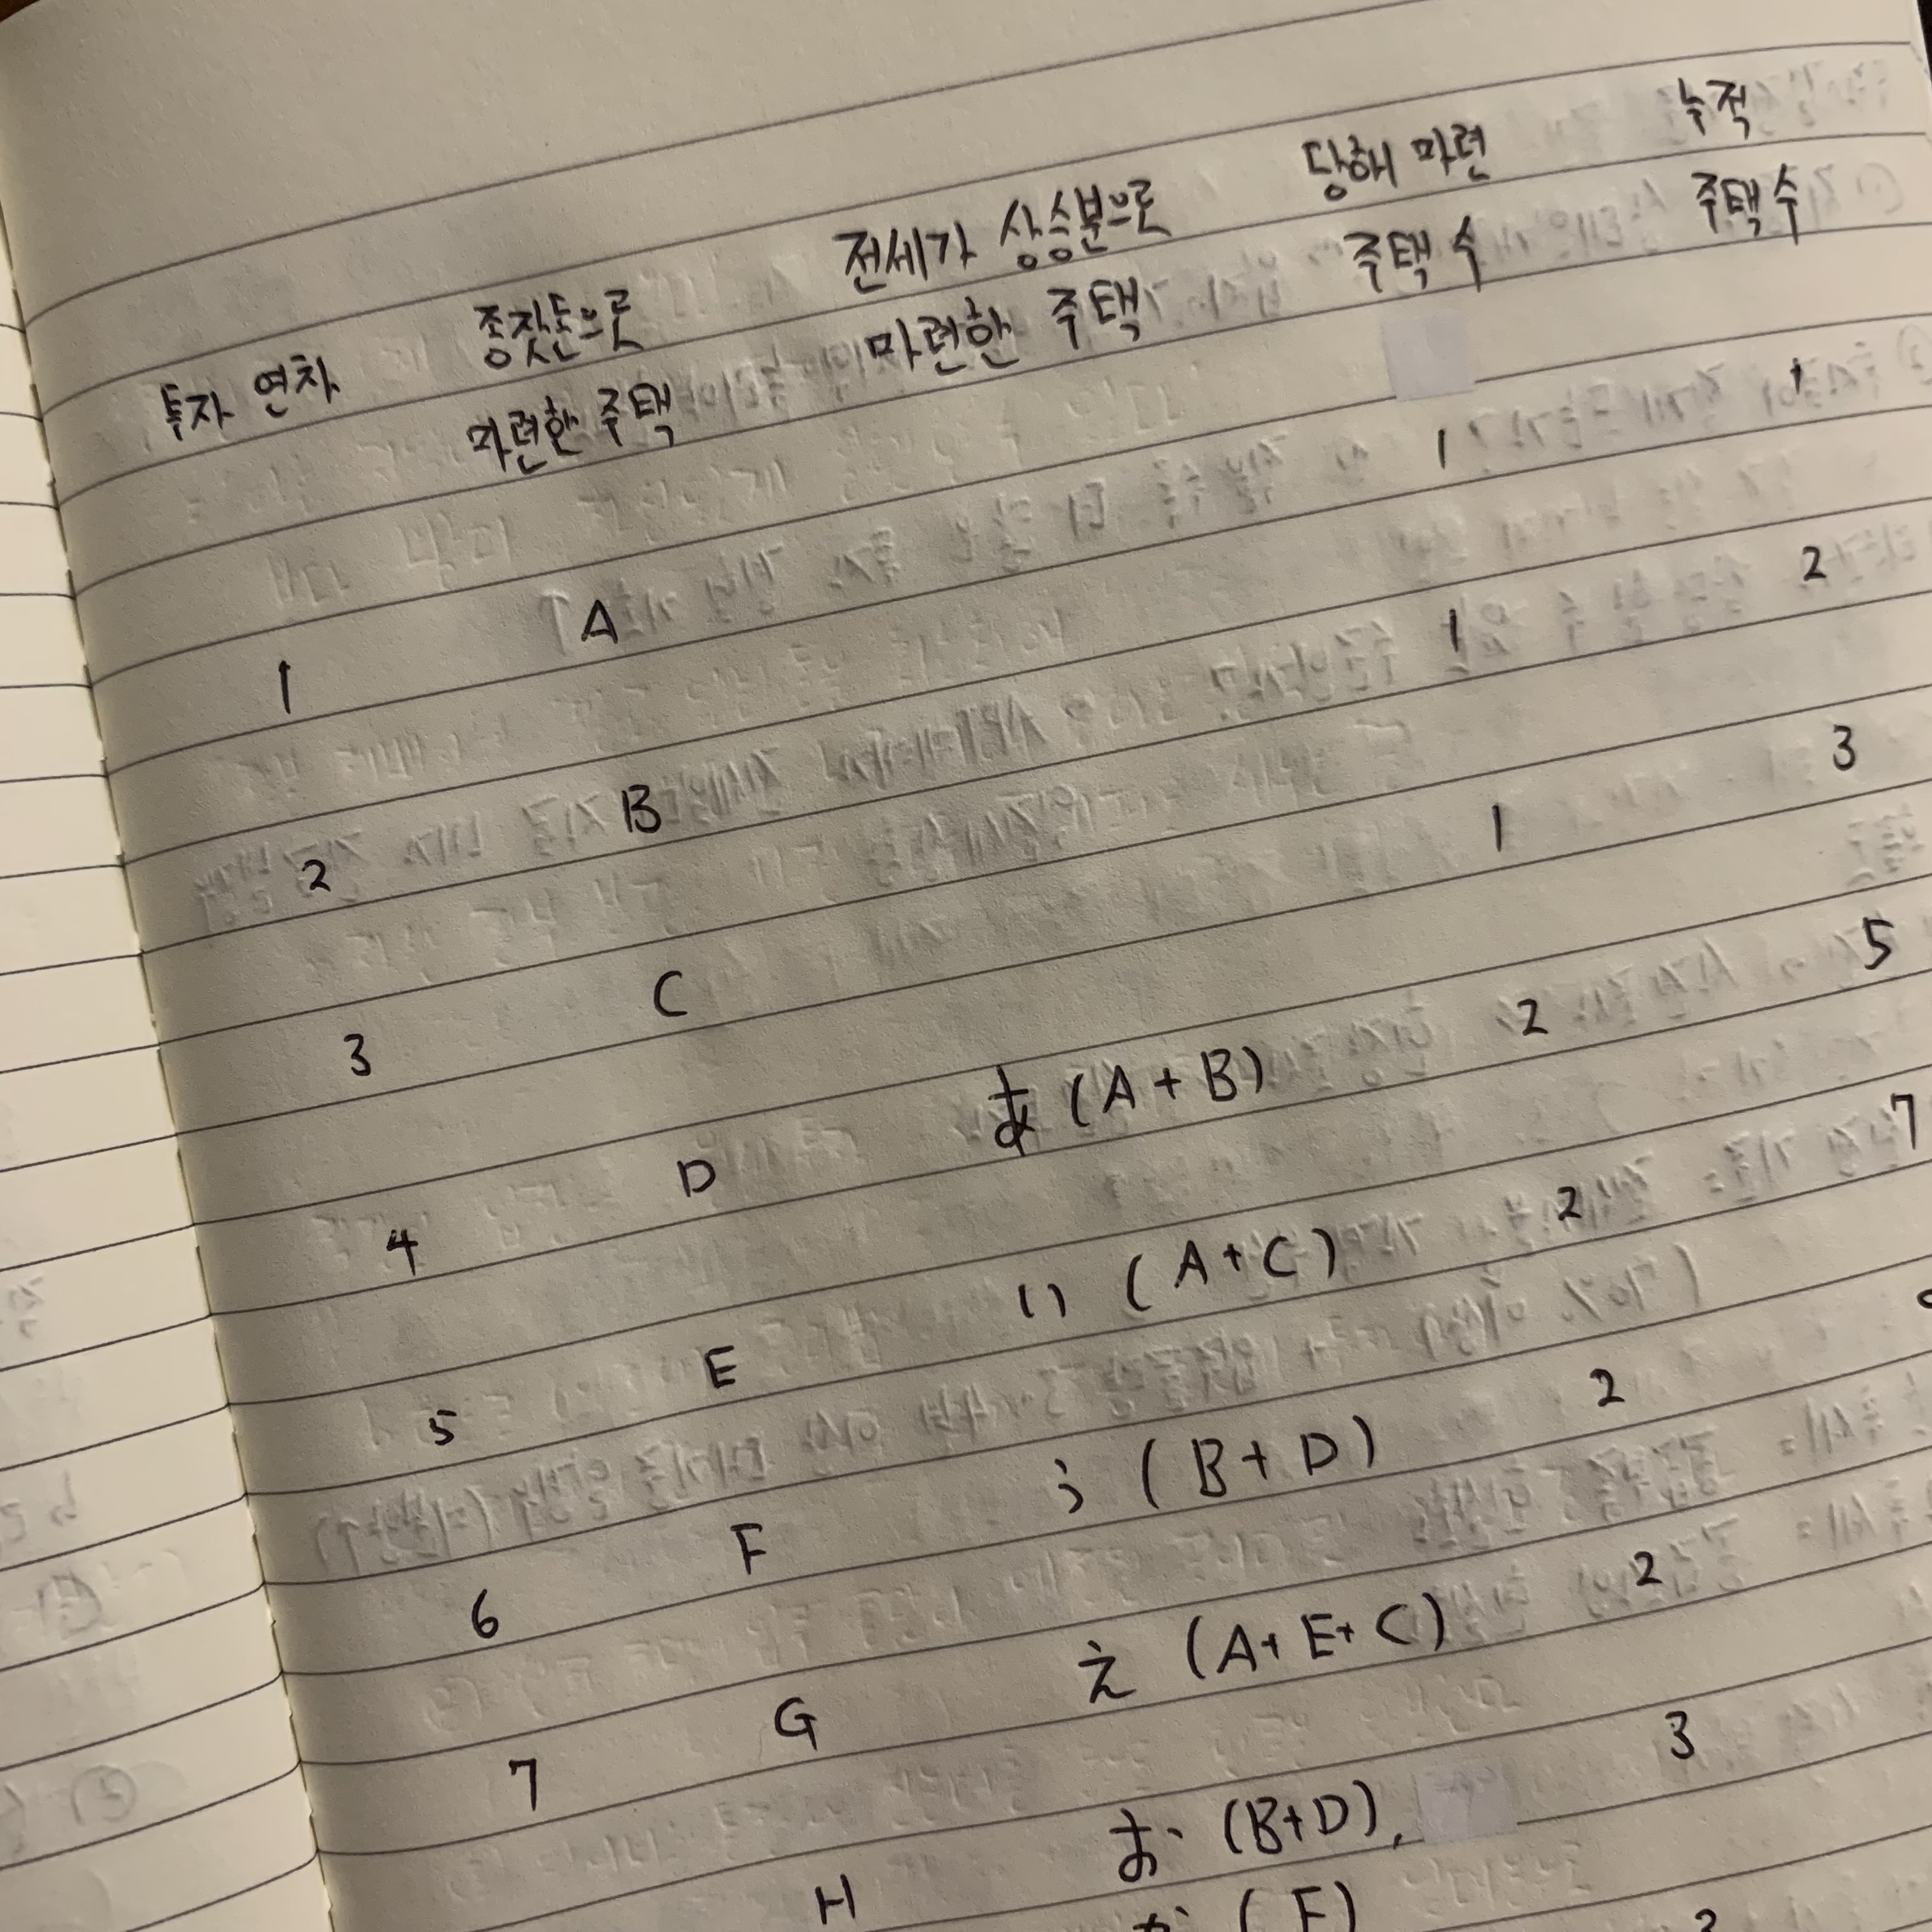 투자 연차 종잣돈으로 마련한 주택 전세가 상승분으로 마련한 주택 당해 마련 주택 수 누적 주택 수
1 A 1 1
2 B 1 2
3 C 1 3
4 D あ (A+B) 2 5
5 E い (A+C) 2 7
6 F う (B+D) 2
7 G え (A+E+C) 2
H お (B+D), 3
か (F)